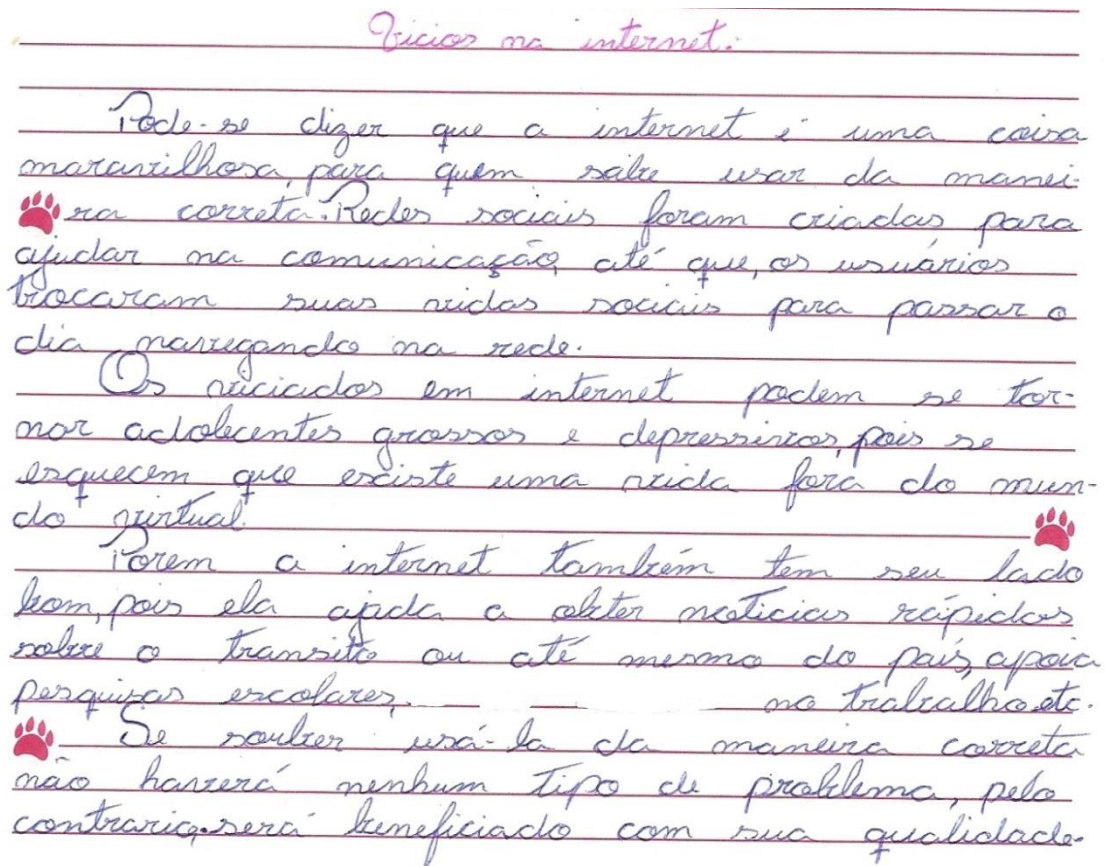 Vicios na internet.
Pode-se dizer que a internet é uma coisa
maravilhosa, para quem sabe usar da manei-
ra correta. Redes sociais foram criadas para
ajudar na comunicação, até que, os usuários
trocaram suas vidas sociais para passar o
dia navegando na rede.
Os viciados em internet podem se tor-
nar adolecentes grossos e depressivos, pois se
esquecem que existe uma vida fora do mun-
do virtual.
Porem a internet também tem seu lado
bom, pois ela ajuda a obter noticias rápidas
sobre o transito ou até mesmo do país, apoia
pesquisas escolares, no trabalho etc.
Se souber usá-la da maneira correta
não haverá nenhum tipo de problema, pelo
contrario, será beneficiado com sua qualidade.